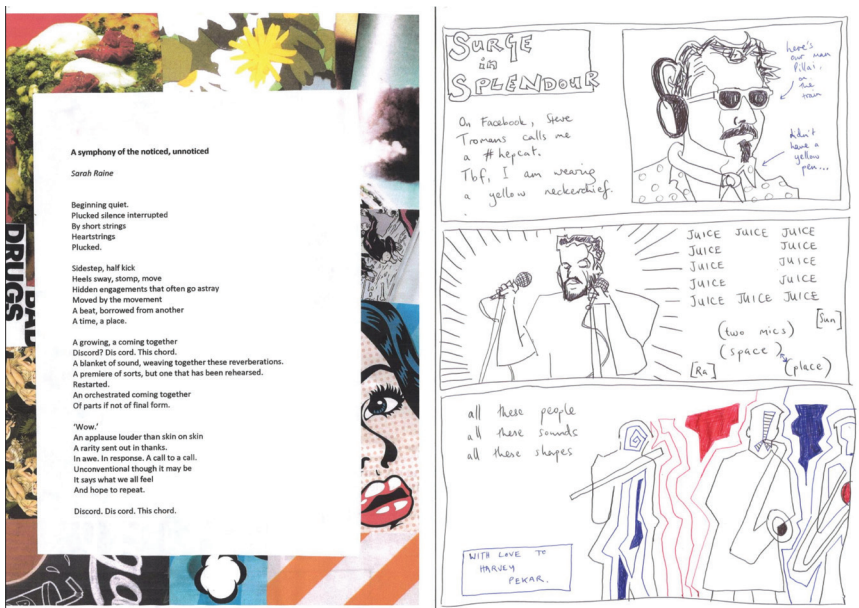 A symphony of the noticed, unnoticed
Sarah Raine
Beginning quiet.
Plucked silence interrupted
By short strings
Heartstrings
Plucked.
Sidestep, half kick
Heels sway, stomp, move
Hidden engagements that often go astray
Moved by the movement
A beat, borrowed from another
A time, a place.
A growing, a coming together
Discord? Dis cord. This chord.
A blanket of sound, weaving together these reverberations.
A premiere of sorts, but one that has been rehearsed.
Restarted.
An orchestrated coming together
Of parts if not of final form.
‘Wow.’
An applause louder than skin on skin
A rarity sent out in thanks.
In awe. In response. A call to a call.
Unconventional though it may be
It says what we all feel
And hope to repeat.
Discord. Dis cord. This chord.
DRUGS
BAD
SURGE
in
SPLENDOUR
On Facebook, Steve
Tromans calls me
a #hepcat.
Tbf, I am wearing
a yellow neckerchief.
here's
our man
Pillai.
on
the
train
didn't
have a
yellow
pen...
JUICE JUICE JUICE
JUICE JUICE
JUICE JUICE
JUICE JUICE
JUICE JUICE JUICE
[Sun]
(two mics)
(space)
[Ra]
(place)
all these people
all these sounds
all these shapes
WITH LOVE TO
HARVEY
PEKAR.